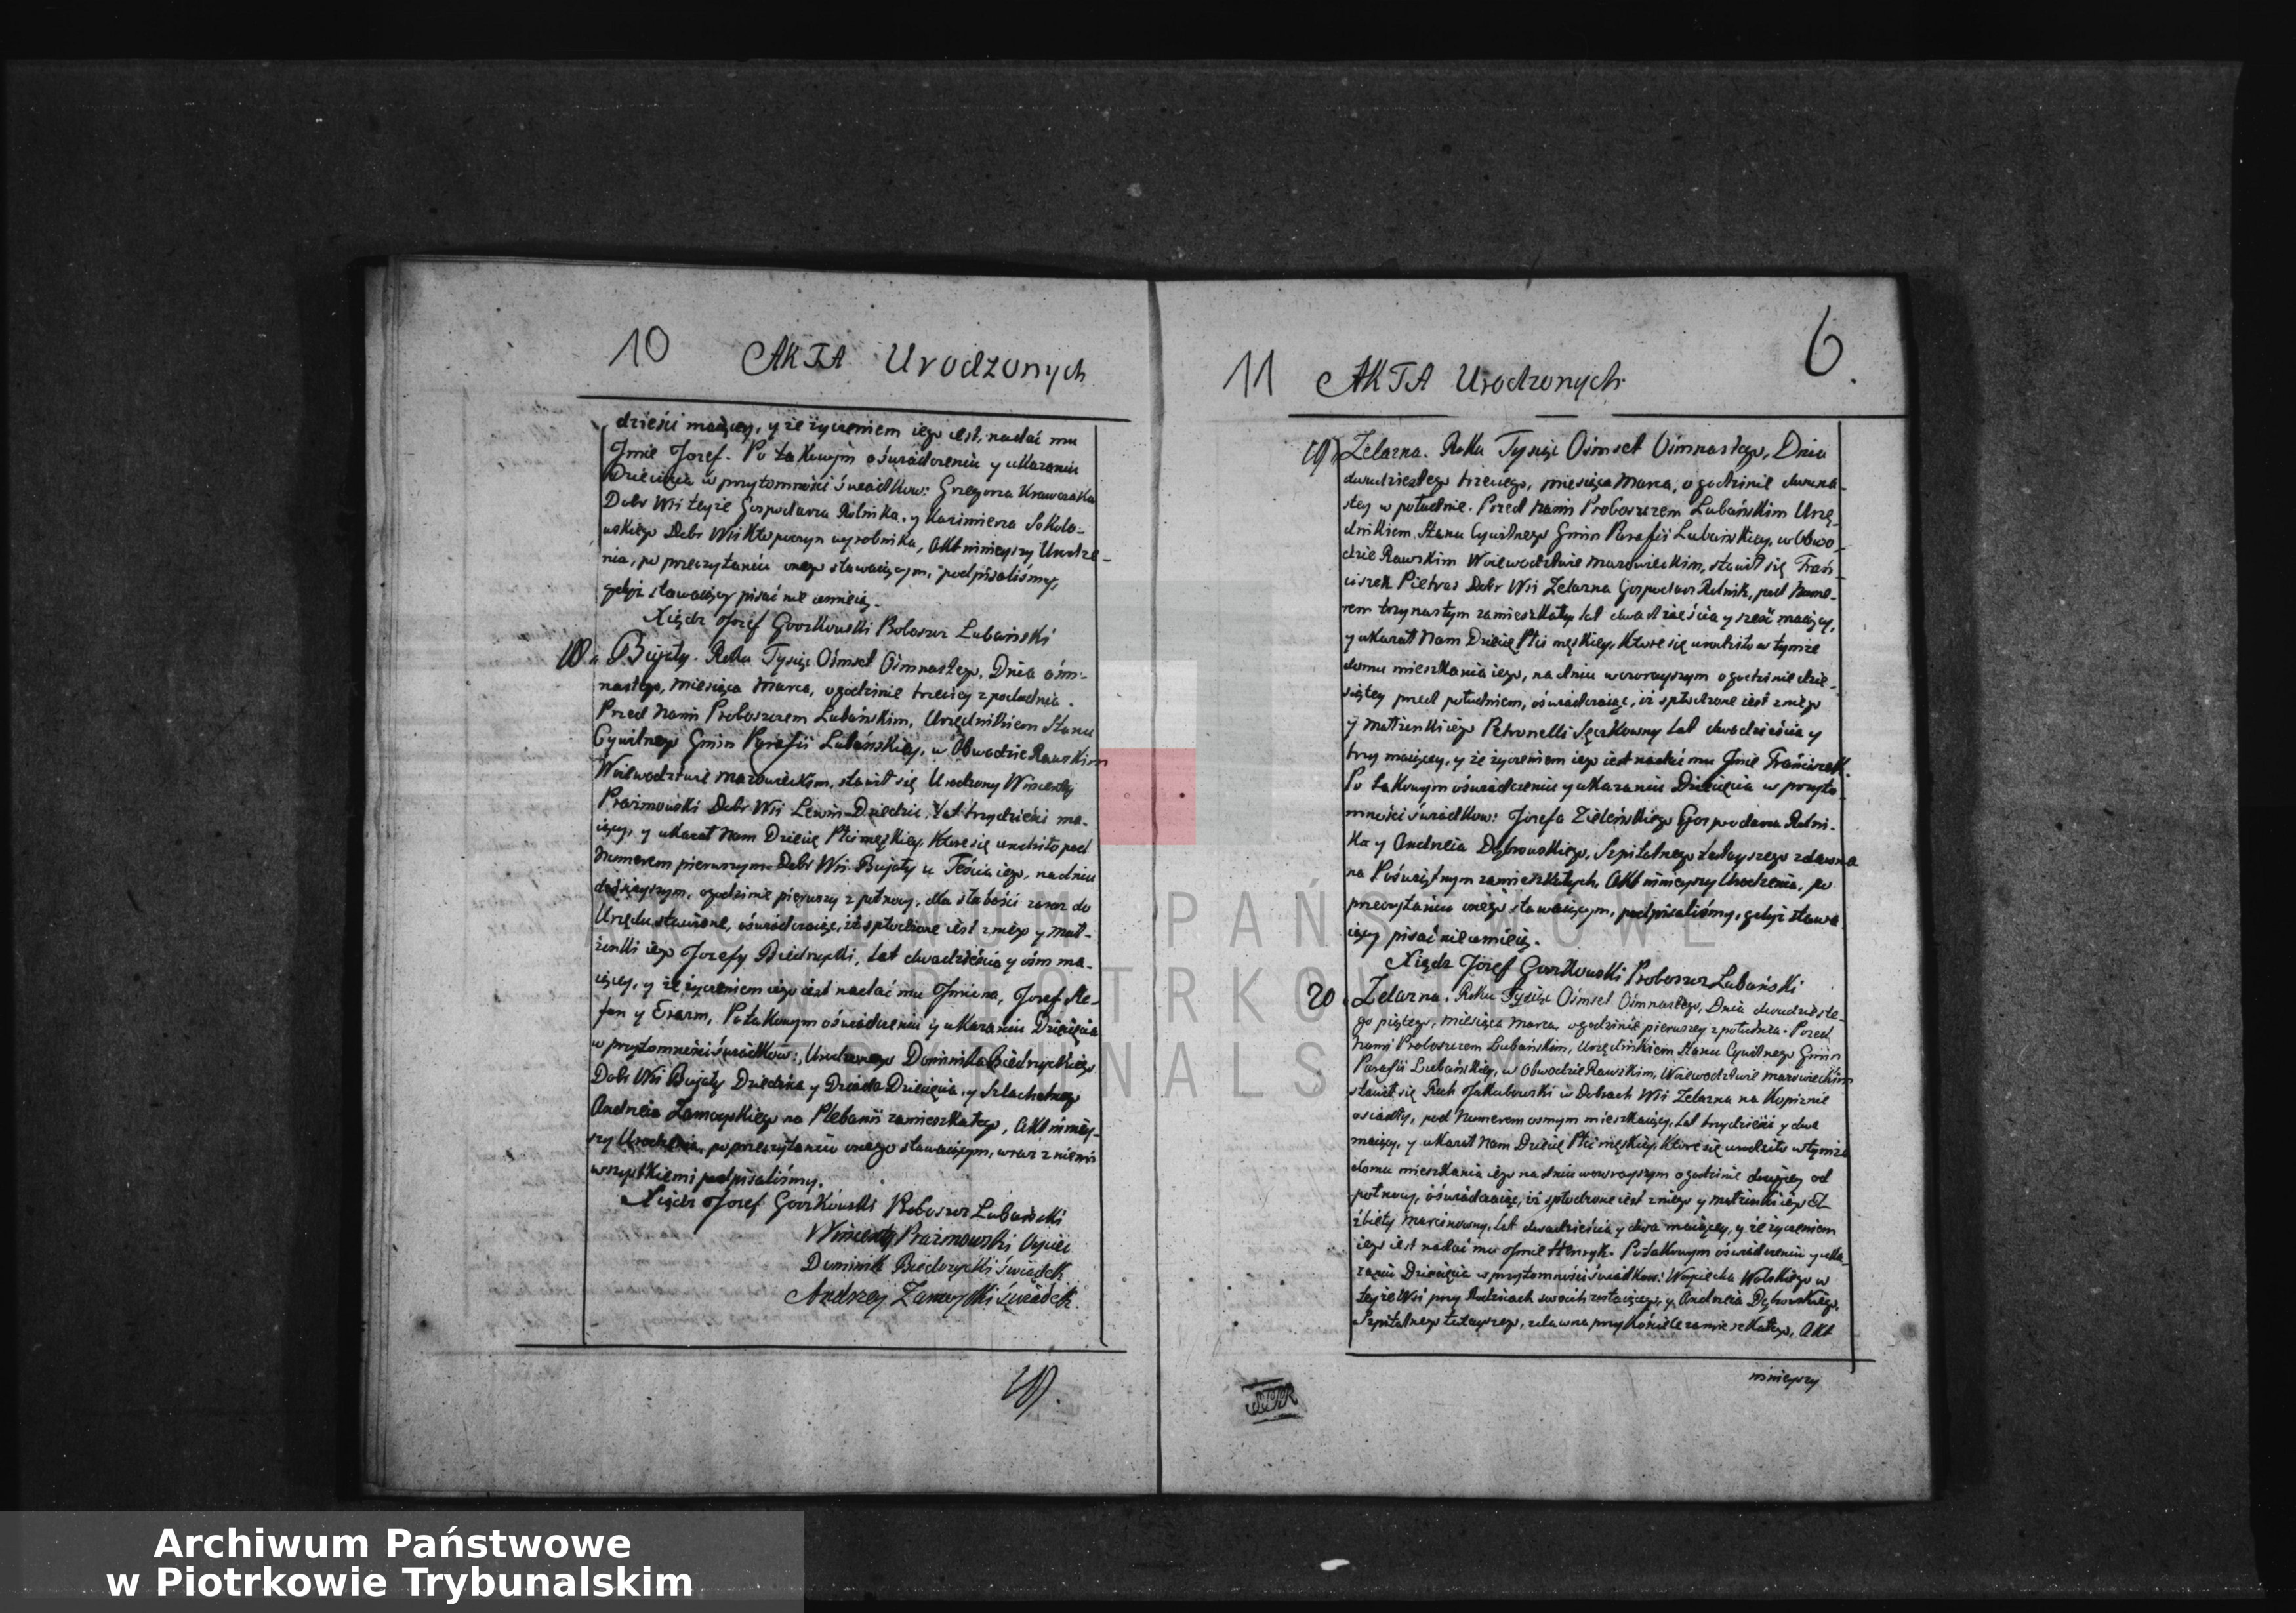 10 AKTA Urodzonych
dzieści maiącey, y że życzeniem iego iest, nadać mu
Jmie Jozef. Po takowym oświadczeniu y ukazaniu
Dziecięcia w przytomności świadkow: Grzegorza Krawczaka
Dobr Wsi teyże Gospodarza Rolnika, y Kazimierza Sokoło-
wskiego Dobr Wsi wyrobnika, Akt ninieyszy Urodze-
nia, po przeczytaniu onego stawaiącym, podpisaliśmy,
gdyż stawaiący pisać nie umieią.
Xiądz Jozef Gorzkowski Proboszcz Lubański
18. Bujały. Roku Tysiąc Ośmset Ośmnastego, Dnia ośm-
nastego, miesiąca Marca, o godzinie trzeciey z południa.
Przed Nami Proboszczem Lubańskim, Urzędnikiem Stanu
Cywilnego Gmin Parafii Lubańskiey, w Obwodzie Rawskim
Woiewodztwie Mazowieckim, stawił się Urodzony Wincenty
Prażmowski Dobr Wsi Lewin Dziedzic, Lat trzydzieści ma-
iący, y ukazał Nam Dziecię Płci męskiey, Które się urodziło pod
Numerem pierwszym Dobr Wsi Bujały u Teścia iego, na dniu
dzisieyszym, o godzinie pierwszy z pułnocy, dla słabości zaraz do
Urzędu stawione, oświadczaiąc, iż spłodzone iest z niego y Mał-
żonki iego Jozefy Biedrzycki, Lat dwadzieścia y ośm ma-
iącey, y że życzeniem iego iest nadać mu Jmiona, Jozef Ste-
fan y Erazm, Po takowym oświadczeniu y ukazaniu Dziecięcia
w przytomności świadkow: Urodzonego Dominika Biedrzyckiego
Dobr Wsi Bujały Dziedzica y Dziada Dziecięcia, y Szlachetnego
Andrzeia Zamoyskiego na Plebanii zamieszkałego, Akt niniey-
szy Urodzenia, po przeczytaniu onego stawaiącym, wraz z niemi
wszystkiemi podpisaliśmy.
Xiądz Jozef Gorzkowski Proboszcz Lubański
Wincenty Prażmowski Oyciec
Dominik Biedrzycki świadek
Andrzey Zamoyski świadek.
19.
11 AKTA Urodzonych 6.
19. Zelazna. Roku Tysiąc Ośmset Ośmnastego, Dnia
dwudziestego trzeciego, miesiąca Marca, o godzinie dwuna-
stey w południe. Przed Nami Proboszczem Lubańskim Urzę-
dnikiem Stanu Cywilnego Gmin Parafii Lubańskiey, w Obwo-
dzie Rawskim Woiewodztwie Mazowieckim, stawił się Fran-
ciszek Pietras Dobr Wsi Zelazna Gospodarz Rolnik, pod Nume-
rem trzynastym zamieszkały, lat dwadzieścia y sześć maiący,
y ukazał Nam Dziecię Płci męskiey, Które się urodziło w tymże
domu mieszkania iego, na dniu wczorayszym o godzinie dzie-
siątey przed południem, oświadczaiąc, iż spłodzone iest z niego
y Małżonki iego Petronelli Sęczkowny Lat dwadzieścia y
trzy maiącey, y że życzeniem iego iest nadać mu Jmie Franciszek.
Po takowym oświadczeniu y ukazaniu Dziecięcia w przyto-
mności świadkow: Jozefa Zielińskiego Gospodarza Rolni-
ka y Andrzeia Dąbrowskiego, Szpitalnego tuteyszego zdawna
na Poświętnym zamieszkałych, Akt ninieyszy Urodzenia, po
przeczytaniu onego stawaiącym, podpisaliśmy, gdyż stawa-
iący pisać nie umieią.
Xiądz Jozef Gorzkowski Proboszcz Lubański
20. Zelazna. Roku Tysiąc Ośmset Ośmnastego, Dnia dwudzieste-
go piątego, miesiąca Marca, o godzinie pierwszey z południa. Przed
Nami Proboszczem Lubańskim, Urzędnikiem Stanu Cywilnego Gmin
Parafii Lubańskiey, w Obwodzie Rawskim, Woiewodztwie Mazowieckim
stawił się Roch Jakubowski w Dobrach Wsi Zelazna na Kopiznie
osiadły, pod Numerem osmym mieszkaiący, Lat trzydzieści y dwa
maiący, y ukazał Nam Dziecię Płci męskiey, Które się urodziło w tymże
domu mieszkania iego na dniu wczorayszym o godzinie drugiey od
pułnocy, oświadczaiąc, iż spłodzone iest z niego y małżonki iego El-
żbiety Marcinowny, Lat dwadzieścia y dwa maiącey, y że życzeniem
iego iest nadać mu Jmie Henryk. Po takowym oświadczeniu y uka-
zaniu Dziecięcia w przytomności świadkow: Woyciecha Wolskiego w
teyże Wsi przy Rodzicach swoich zostaiącego, y Andrzeia Dąbrowskiego,
Szpitalnego tuteyszego, zdawna przy Kościele zamieszkałego, Akt
ninieyszy
ARCHIWUM PAŃSTWOWE
W PIOTRKOWIE
TRYBUNALSKIM
Archiwum Państwowe
w Piotrkowie Trybunalskim